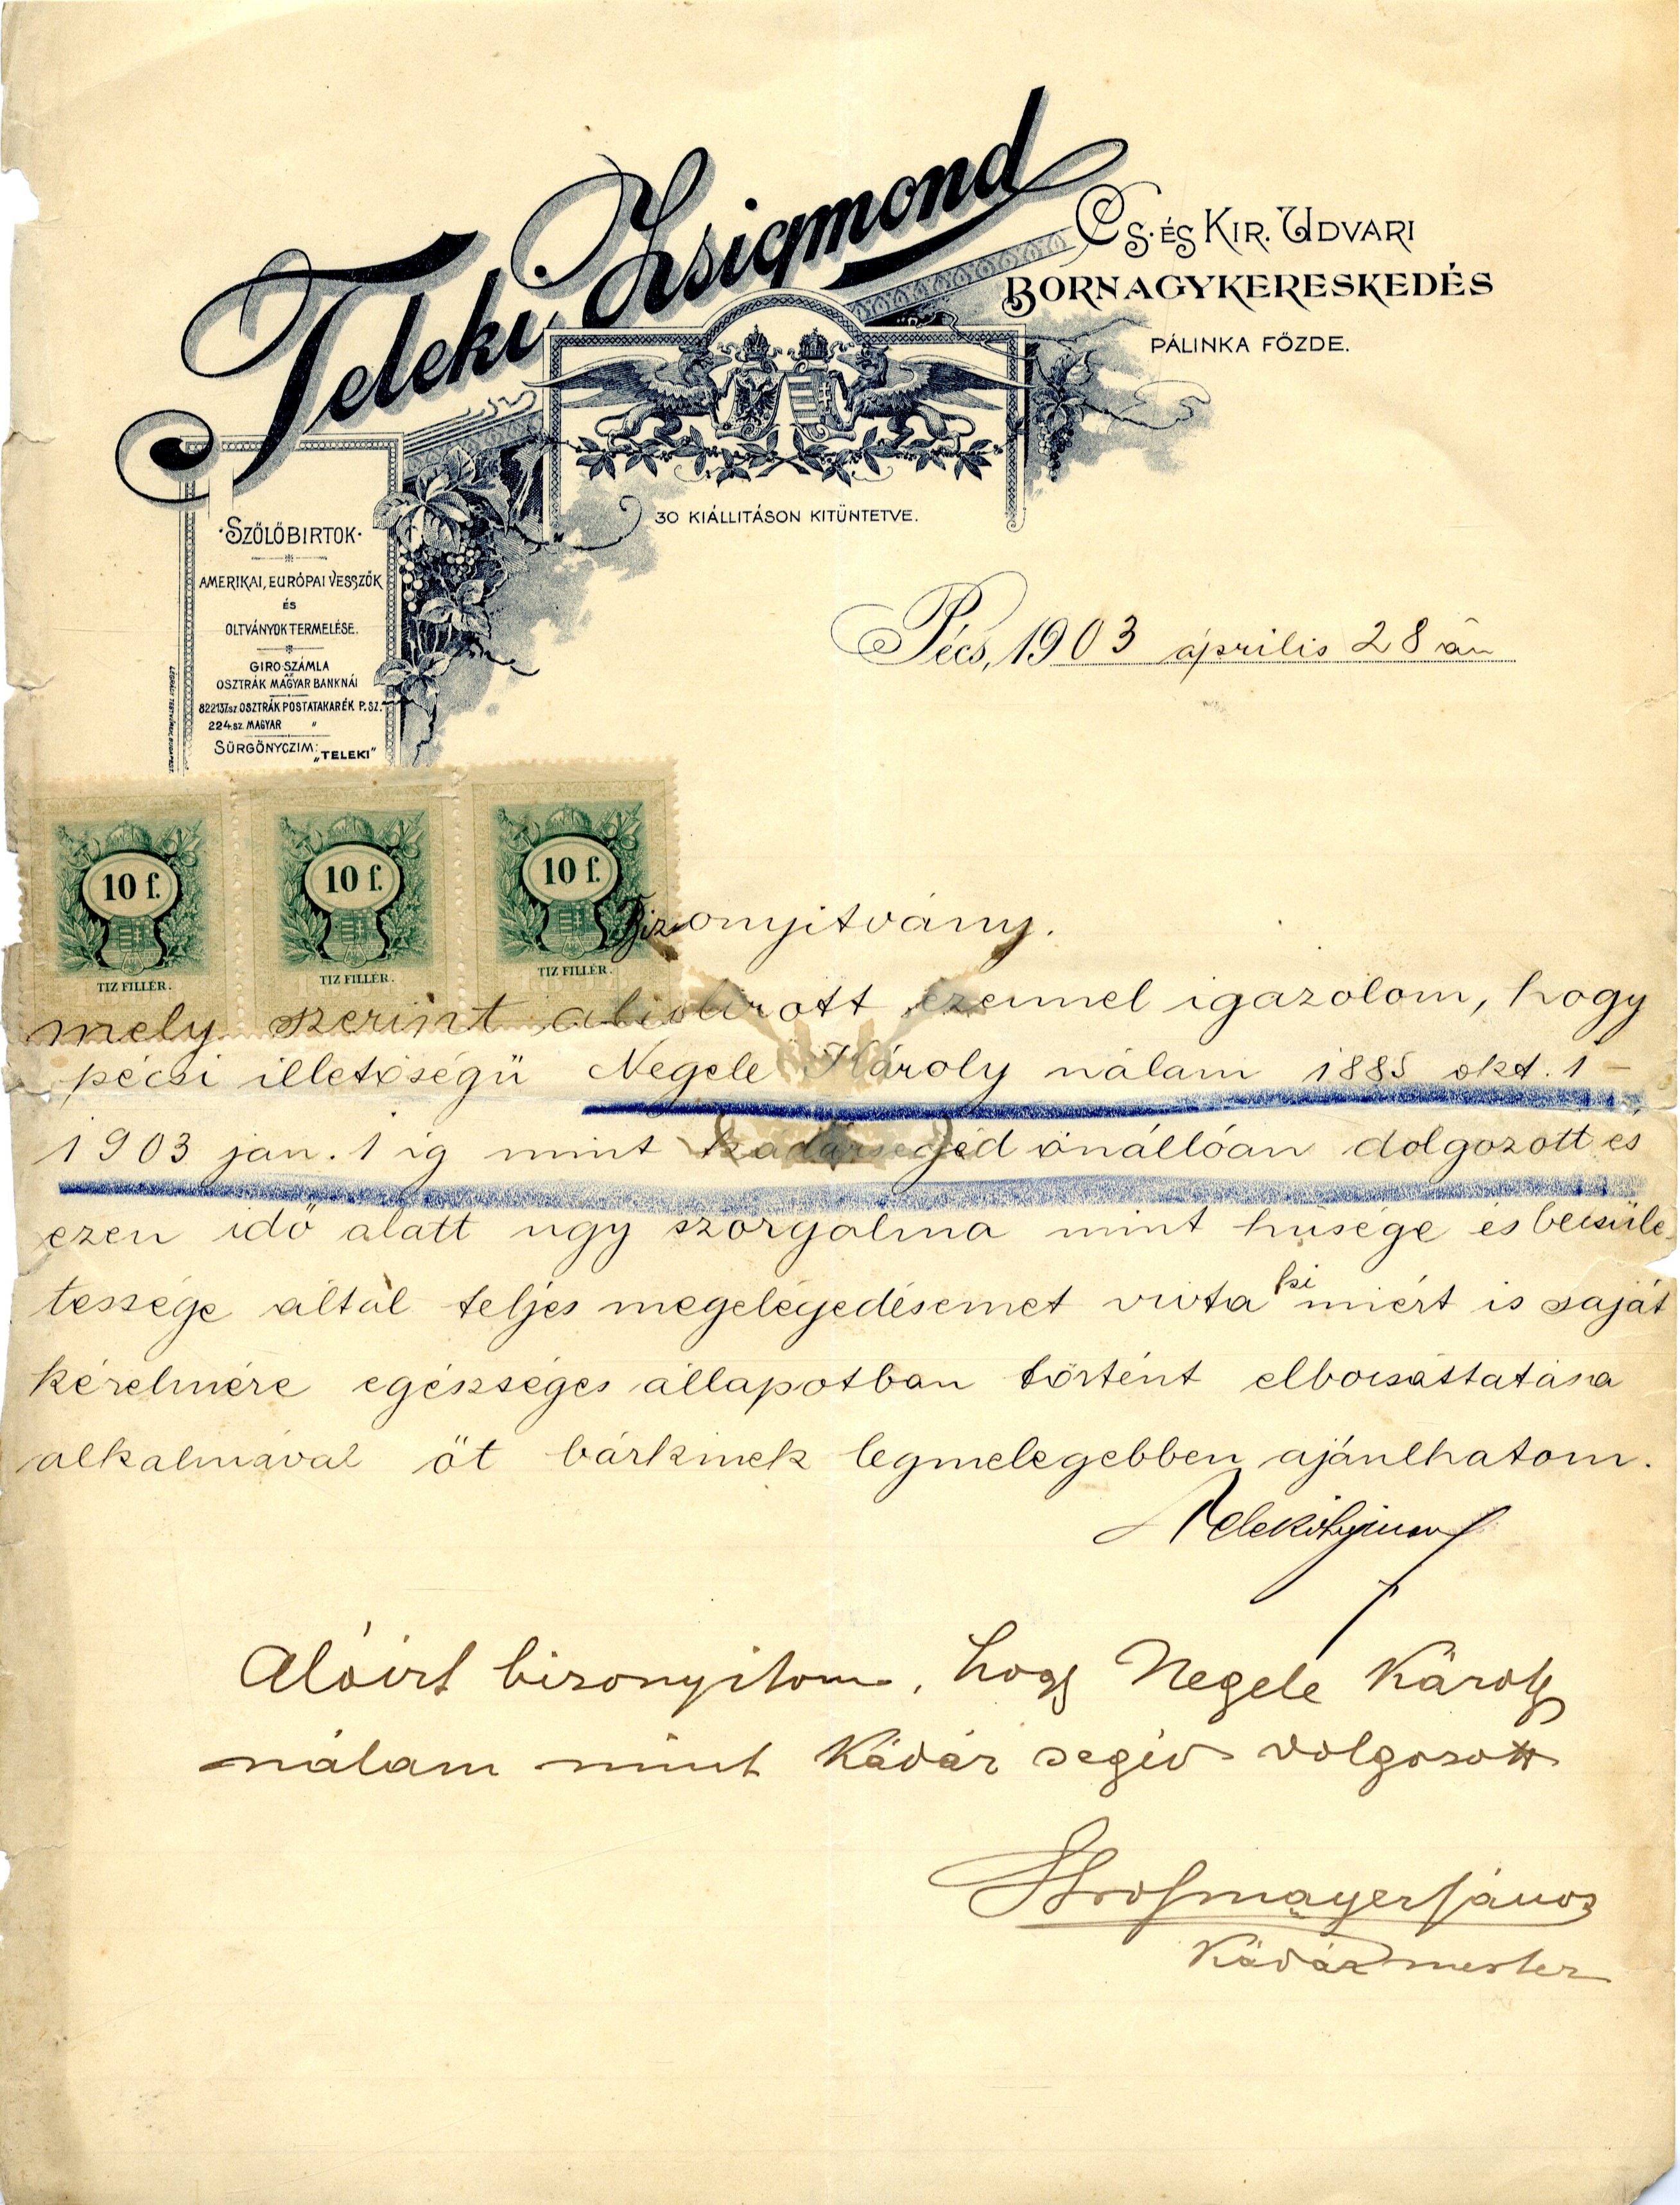 Teleki Zsigmond
Cs. és Kir. Udvari
Bornagykereskedés
Pálinka Főzde.
30 Kiállitáson Kitüntetve.
·Szőlőbirtok·
Amerikai, Európai Vesszők
és
Oltványok Termelése.
Giro Számla
az
Osztrák Magyar Banknál
822137.sz. Osztrák Postatakarék P. Sz.
224.sz. Magyar "
Sürgönyczim: „Teleki"
Pécs, 1903 április 28 án
10 f. 10 f. 10 f.
TIZ FILLÉR. TIZ FILLÉR. TIZ FILLÉR.
Bizonyitvány.
mely szerint alulirott ezennel igazolom, hogy
pécsi illetőségü Negele Károly nálam 1885 okt. 1 –
1903 jan. 1 ig mint kadársegéd önállóan dolgozott és
ezen idő alatt ugy szorgalma mint hüsége és becsüle-
tessége által teljes megelégedésemet vivta ki miért is saját
kérelmére egészséges állapotban történt elbocsáttatása
alkalmával őt bárkinek legmelegebben ajánlhatom.
Teleki Zsigmond
Alóirt bizonyitom, hogy Negele Károly
nálam mint Kádár segéd dolgozott
János
Kádármester